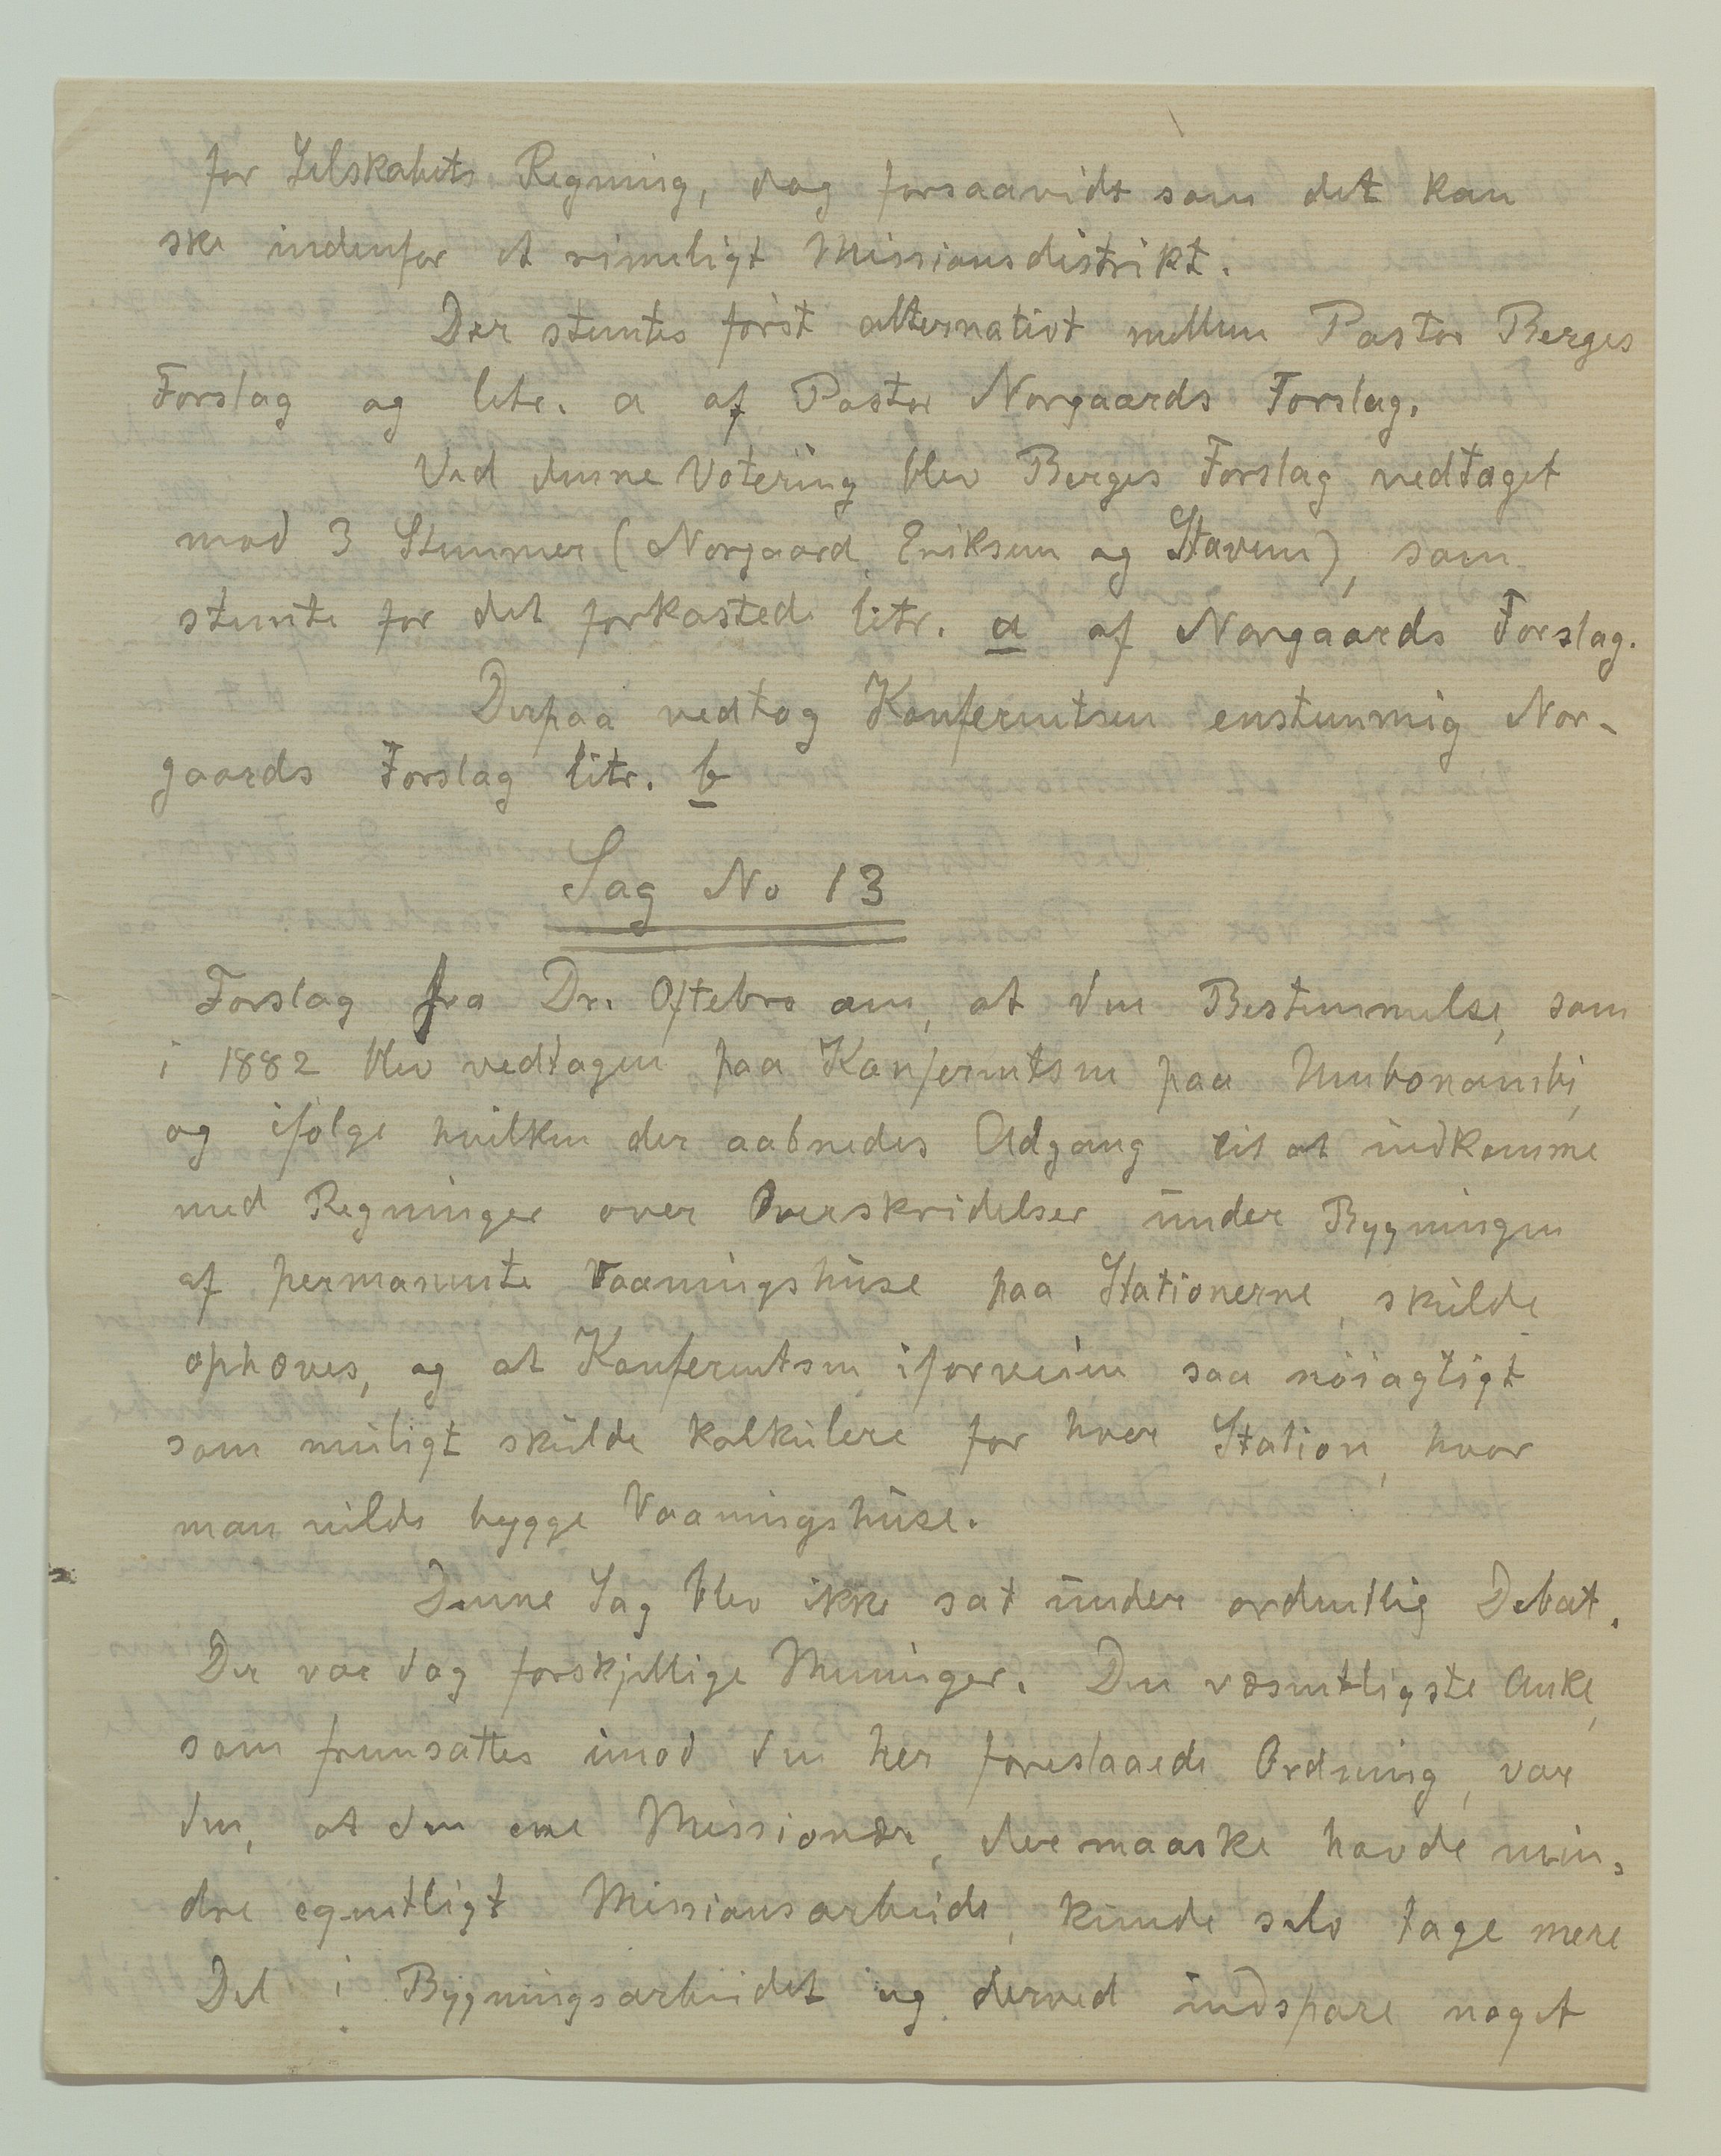 for Selskabets Regning, dog forsaavidt som det kan
ske indenfor et rimeligt Missionsdistrikt.
Der stemtes först alternativt mellem Pastor Berges
Forslag og litr. a af Pastor Norgaards Forslag.
Ved denne Votering blev Berges Forslag vedtaget
mod 3 Stemmer (Norgaard, Eriksen og Stavem), som
stemte for det forkastede litr. a af Norgaards Forslag.
Derpaa vedtog Konferentsen enstemmig Nor-
gaards Forslag litr. b
Sag No 13
Forslag fra Dr. Oftebro om, at den Bestemmelse, som
i 1882 blev vedtagen paa Konferentsen paa Umbonambi,
og ifölge hvilken der aabnedes Adgang til at indkomme
med Regninger over Overskridelser under Bygningen
af permanente Vaaningshuse paa Stationerne, skulde
ophoves, og at Konferentsen iforveien saa nöiagtigt
som muligt skulde kalkulere for hver Station, hvor
man vilde bygge Vaaningshuse.
Denne Sag blev ikke sat under ordentlig Debat.
Der var dog forskjellige Meninger. Den væsentligste Anke,
som fremsattes imod den her foreslaaede Ordning, var
den, at den ene Missionær, der maaske havde min-
dre egentligt Missionsarbeide, kunde selv tage mere
Del i Bygningsarbeidet og derved indspare noget